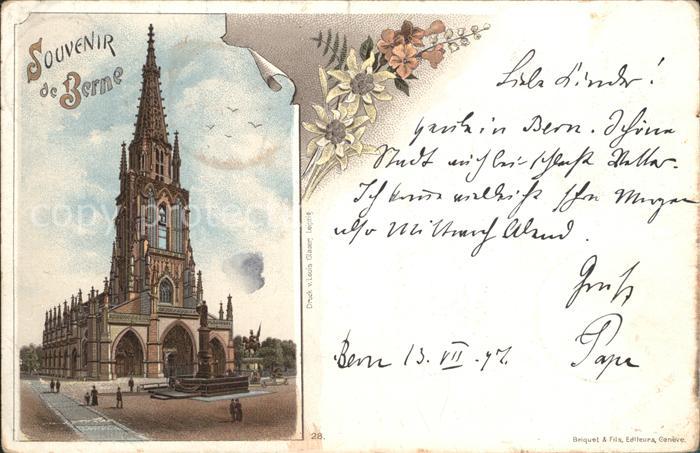 SOUVENIR
de Berne
Liebe Kinder!
heute in Bern. Schöne
Stadt auch bei schlecht Wetter.
Ich komme vielleicht schon Morgen
also Mittwoch Abend.
Gruss
Papa
Bern 13. VII. 97.
Druck v. Louis Glaser, Leipzig
28.
Briquet & Fils, Editeurs, Genève.
copyright